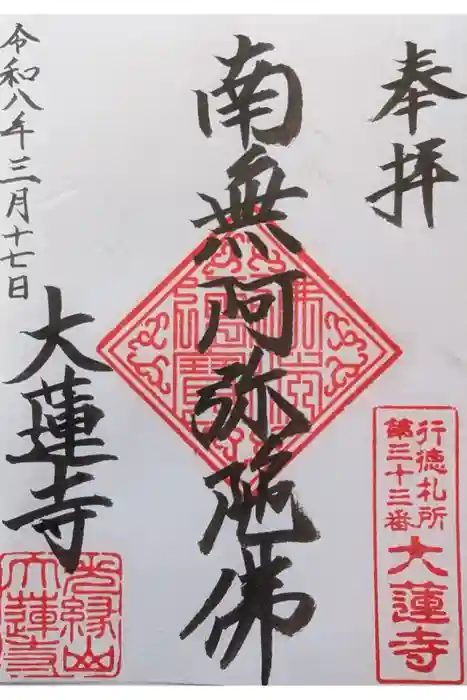 奉拝
行徳札所
第三十三番
大蓮寺
南無阿弥陀佛
佛法僧寶
令和八年三月十七日
大蓮寺
光縁山
大蓮寺